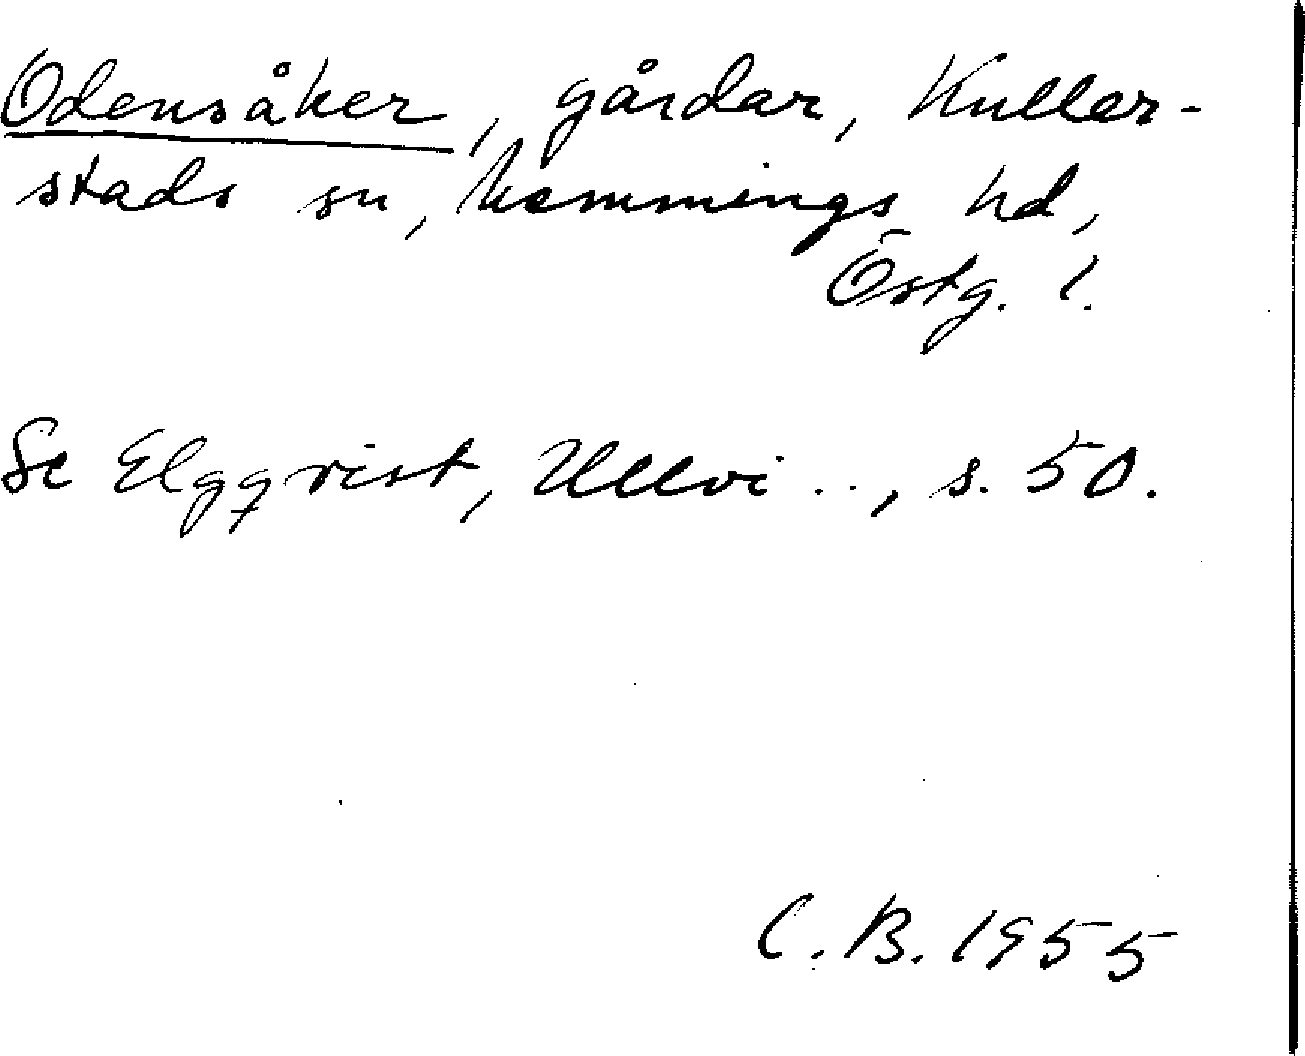 Odensåker, gårdar, Kuller-
stads sn, Memmings hd,
Östg. l.
Se Elgqvist, Ullvi . . , s. 50.
C. B. 1955